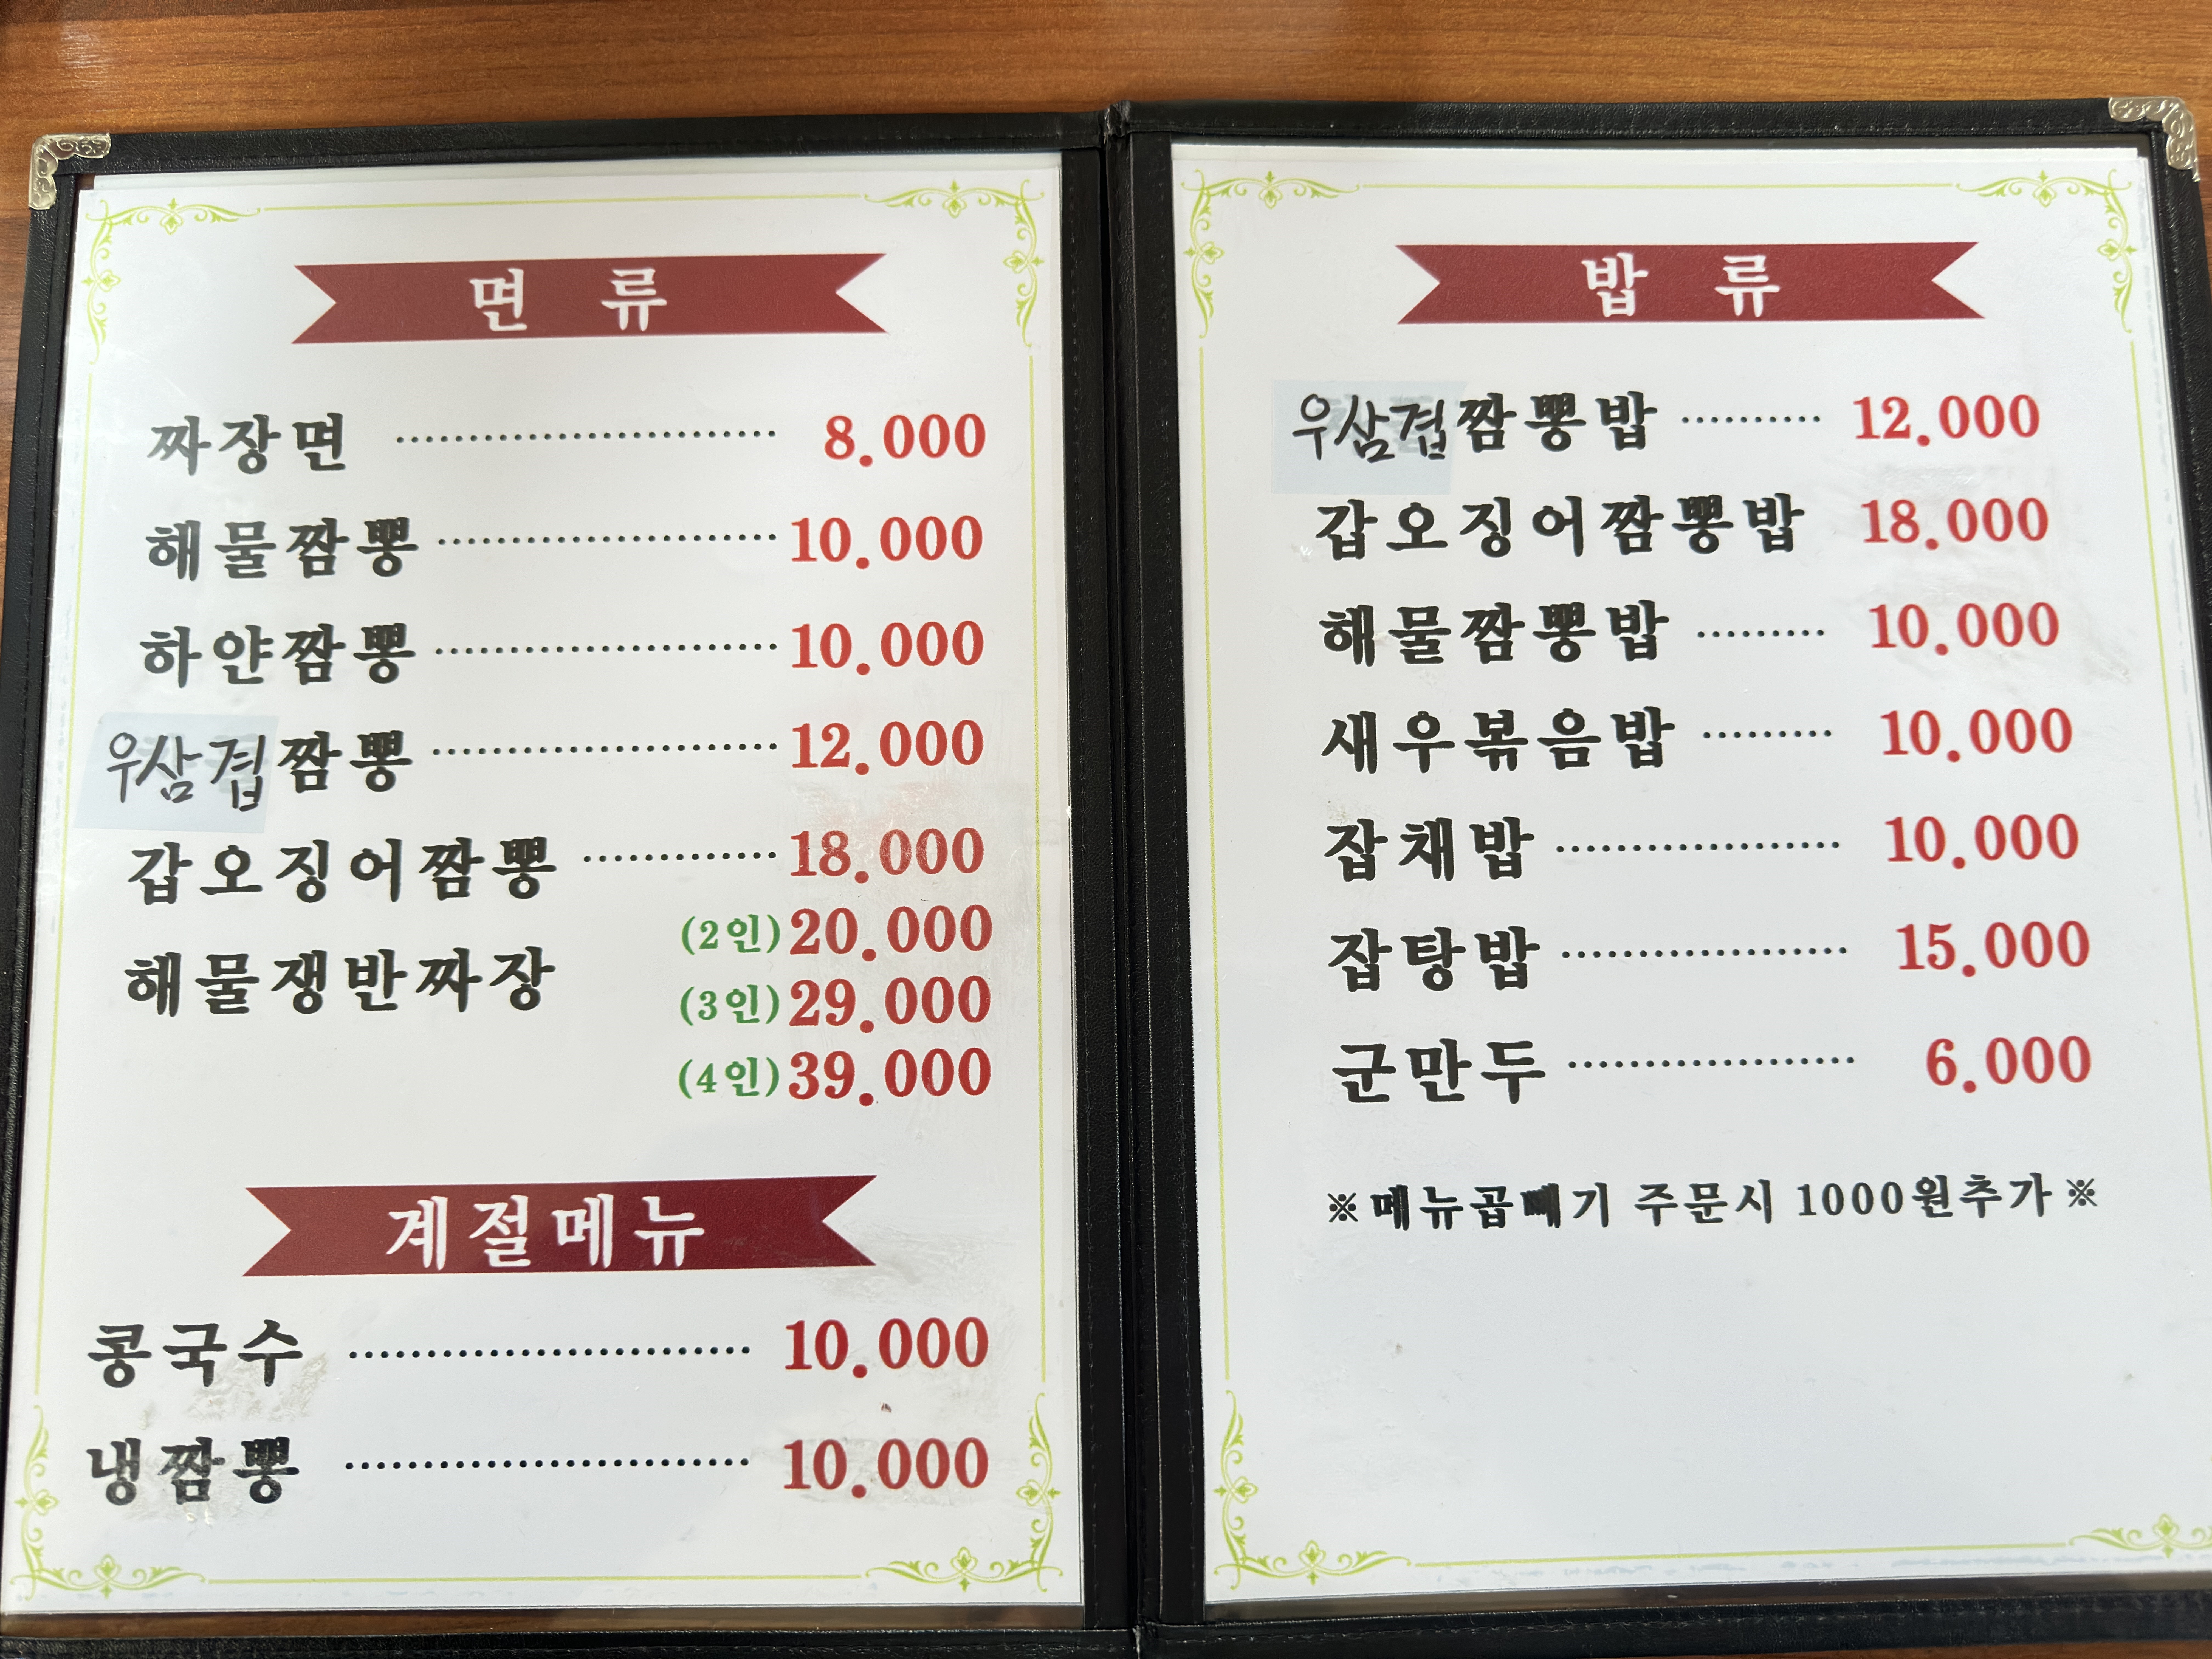 면 류
짜장면 ........................ 8.000
해물짬뽕 ........................ 10.000
하얀짬뽕 ........................ 10.000
우삼겹짬뽕 ........................ 12.000
갑오징어짬뽕 ............. 18.000
해물쟁반짜장 (2인) 20.000
(3인) 29.000
(4인) 39.000
계절메뉴
콩국수 ......................... 10.000
냉짬뽕 ......................... 10.000
밥 류
우삼겹짬뽕밥 .......... 12.000
갑오징어짬뽕밥 18.000
해물짬뽕밥 ......... 10.000
새우볶음밥 ......... 10.000
잡채밥 ................... 10.000
잡탕밥 ................... 15.000
군만두 ................... 6.000
※메뉴곱빼기 주문시 1000원추가※